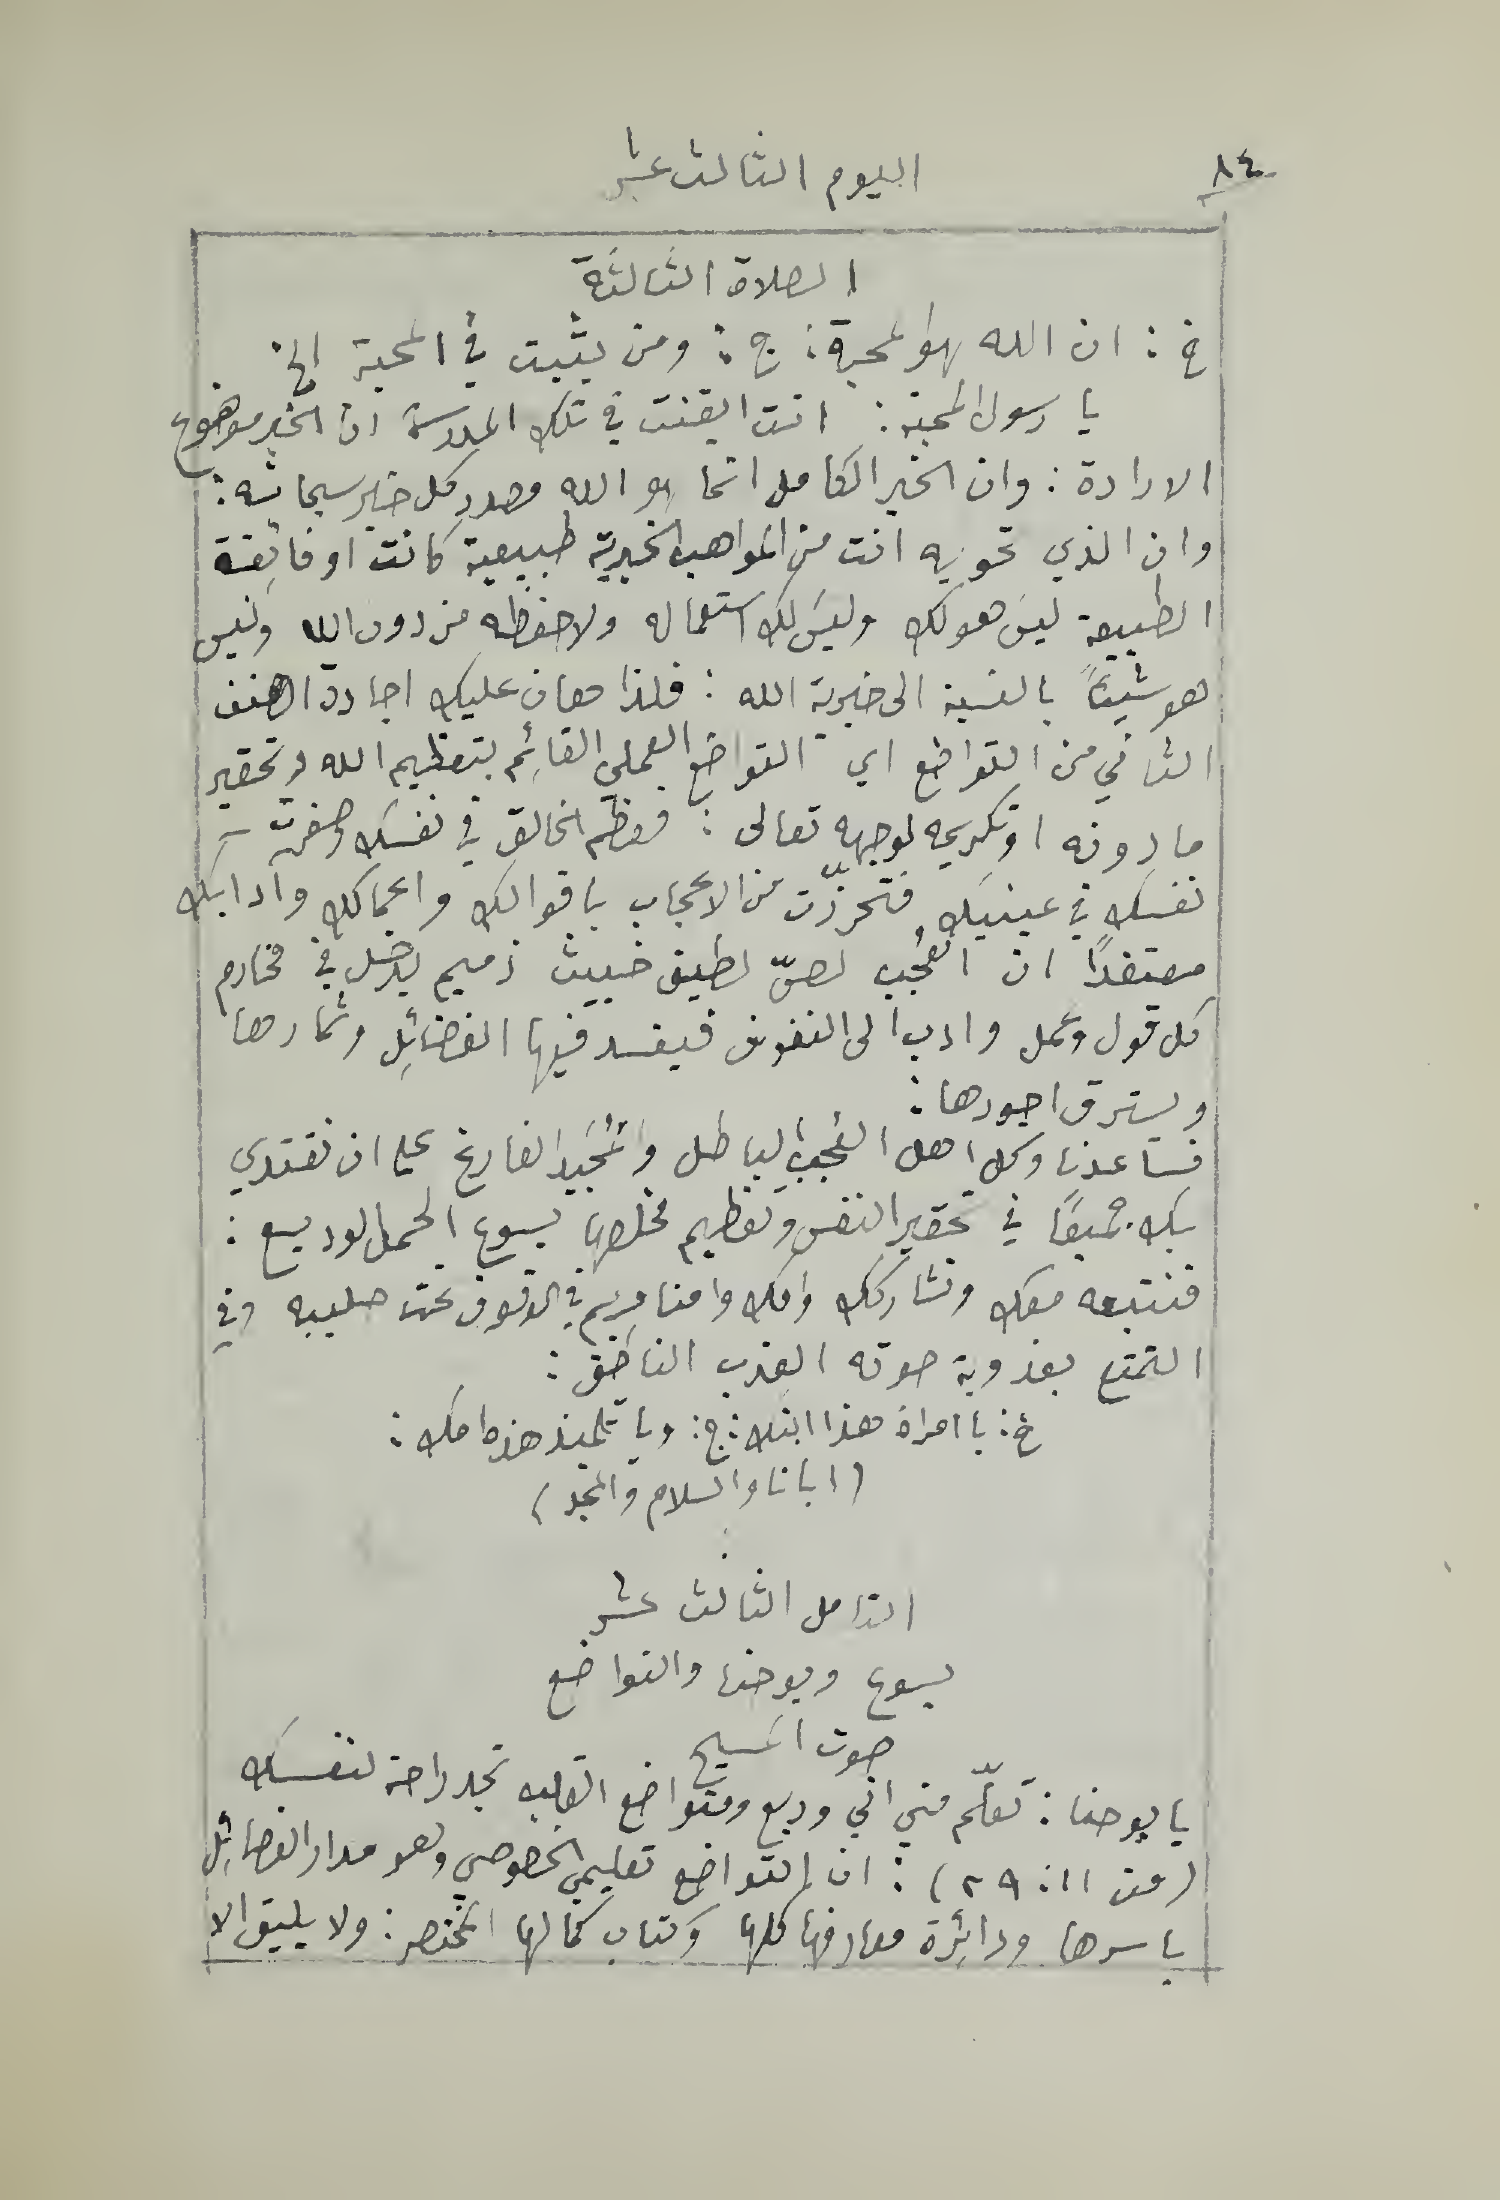 ٨٤
اليوم الثالث عشر
الصلاة الثالثة
خ : ان الله هو المحبة : ج : ومن يثبت في المحبة الخ :
يا رسول المحبة : انت ايقنت في تلك المدرسة ان الخير موضوع
الارادة : وان الخير الكامل انما هو الله مصدر كل خير سبحانه :
وان الذي تحويه انت من المواهب الخيرية طبيعية كانت او فائقة
الطبيعة ليس هو لك وليس لك استعماله ولا حفظه من دون الله وليس
هو شيئًا بالنسبة الى خيرية الله : فلذا هان عليك اجادة الصنف
الثاني من التواضع اي التواضع العملي القائم بتعظيم الله وتحقير
ما دونه او تكريمه لوجهه تعالى : فعظم الخالق في نفسك وصغرت
نفسك في عينيك فتحرّزت من الاعجاب باقوالك واعمالك وآدابك
معتقدًا ان العُجب لصّ لطيف خبيث ذميم يدخل في مخارم
كل قول وعمل وادب الى النفوس فيفسد فيها الفضائل وثمارها
ويسترق اجورها :
فساعدنا وكل اهل العُجب الباطل والمجد الفارغ على ان نقتدي
بك جميعًا في تحقير النفس وتعظيم مخلصها يسوع الحمل الوديع :
فنتبعه معك ونشاركك وامك وامنا مريم في الوقوف تحت صليبه وفي
التمتع بعذوبة صوته العذب الناطق :
خ : يا امراة هذا ابنك : ج : ويا تلميذ هذه امك :
( ابانا والسلام والمجد )
التامل الثالث عشر
يسوع ويوحنا والتواضع
صوت المسيح
يا يوحنا : تعلّم مني اني وديع ومتواضع القلب تجد راحة لنفسك
(متى ١١ : ٢٩) : ان التواضع تعليمي الخصوصي وهو مدار الفضائل
باسرها ودائرة معارفها كلها وكتاب كمالها المختصر : ولا يليق الا